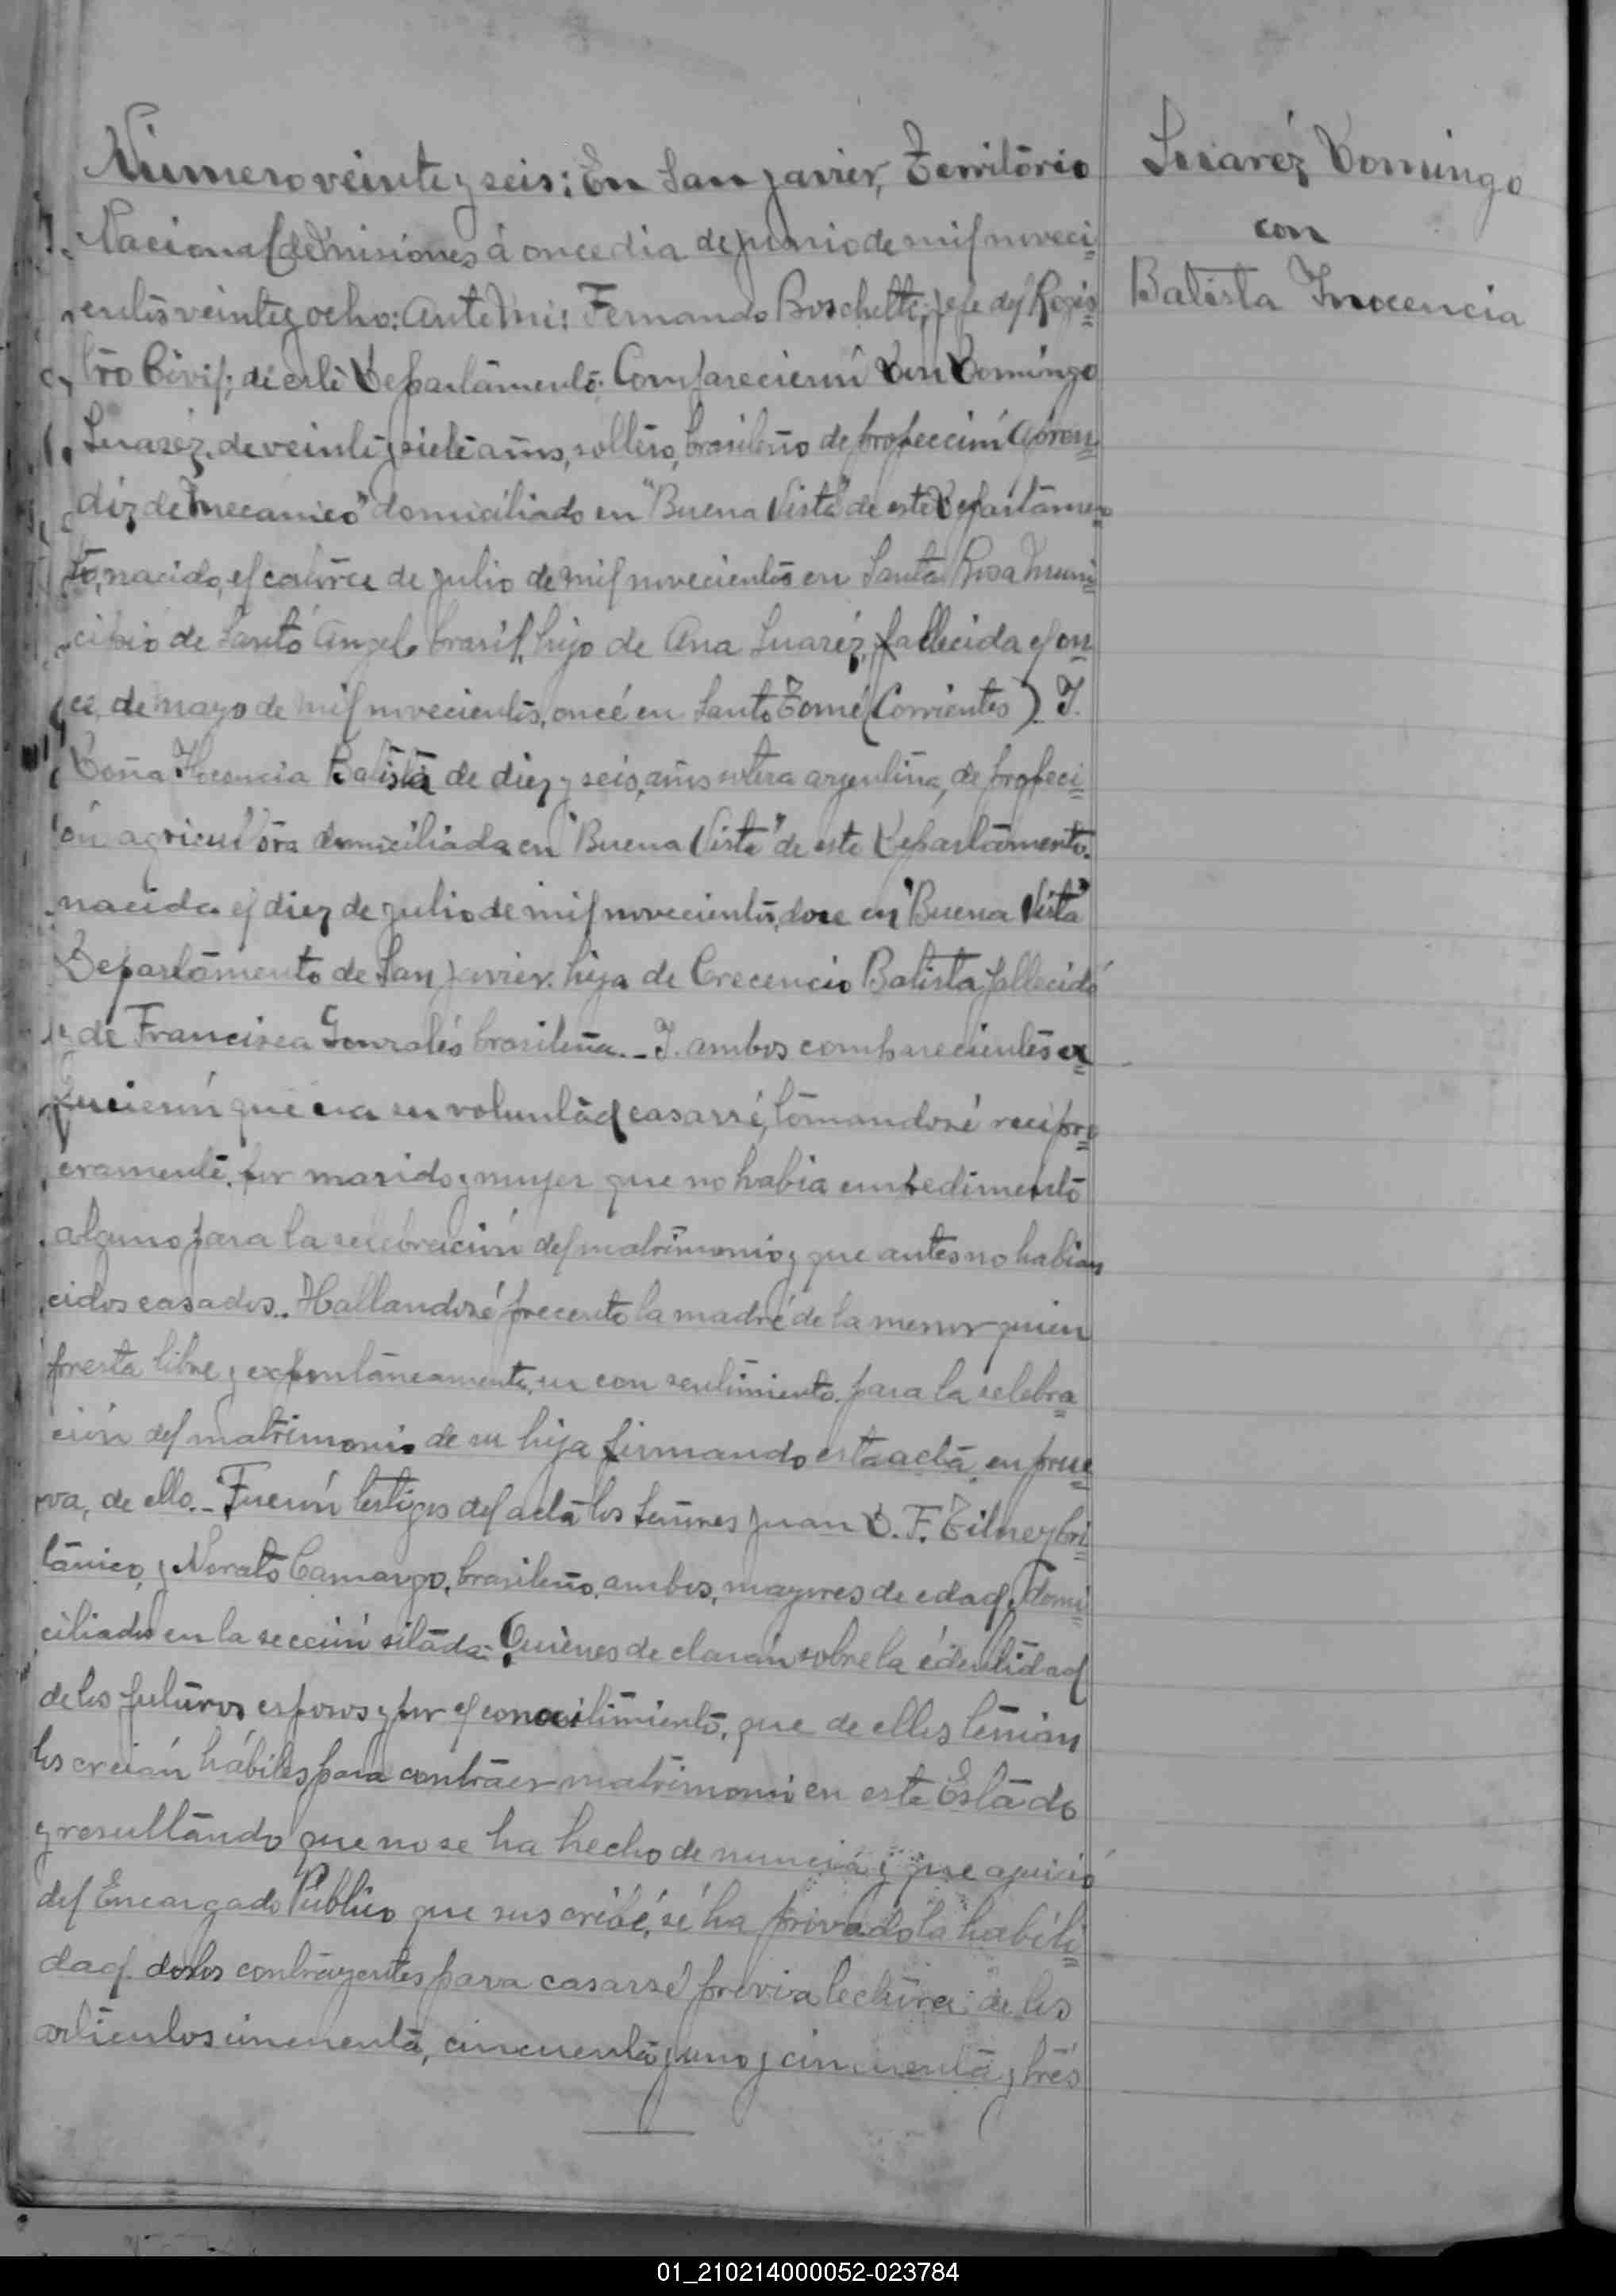 Número veinte y seis: En San Javier, Território
Nacional de Misiones á once dia de junio de mil noveci=
entos veinte y ocho: Ante Mi: Fernando Boschetti, Jefe del Regis=
tro Civil; de este Departamento. Comparecierón Don Domingo
Suaréz, de veinte y siete años, soltero, brasileño de profección Apren=
diz de "Mecánico" domiciliado en "Buena Vista" de este Departamen=
to, nacido, el catorce de julio de mil novecientos en Santa Rosa Muni=
cipio de Santo Angelo brasil, hijo de Ana Suaréz, fallecida el on=
ce, de mayo de mil novecientos, oncé en Santo Tomé (Corrientes). Y.
Doña Inocencia Batista de diez y seis, años soltera argentina, de profeci=
ón agricultora domiciliada en "Buena Vista" de este Departamento.
nacida el diez de julio de mil novecientos, doce en "Buena Vista"
Departamento de San Javier. hija de Crecencio Batista, fallecidó
y de Francisca Gonzalés brasileña._ Y. ambos comparecientes ex=
pucierón que era su voluntad casarsé, tomandosé recipro=
camente. por marido y mujer que no habia empedimento
alguno para la selebración del matrimonio y que antes no habian
cidos casados.. Hallandosé precente la madre de la menor quien
presta libre y expontáneamente, su con sentimiento. para la selebra=
ción del matrimonio de su hija firmando esta acta en prue=
va, de ello._ Fuerón testigos del acta los Señores Juan D. F. Tilney bri=
tánico, y Norato Camargo, brasileño, ambos, mayores de edad, domi=
ciliados en la sección sitada. Quienes de clarán sobre la édentidad
de los futuros esposos y por el conocitimiento, que de ellos tenian
los creián hábiles para contraer matrimoni en este Estado
y resultando que no se ha hecho de nuncia y que a juició
del Encargado Público que sus cribé, sé ha privado la habili=
dad. de los contrayentes para casarsé previa lectura de los
articulos cincuenta, cincuenta y uno y cincuenta y trés
Suaréz Domingo
con
Batista Inocencia
01_210214000052-023784